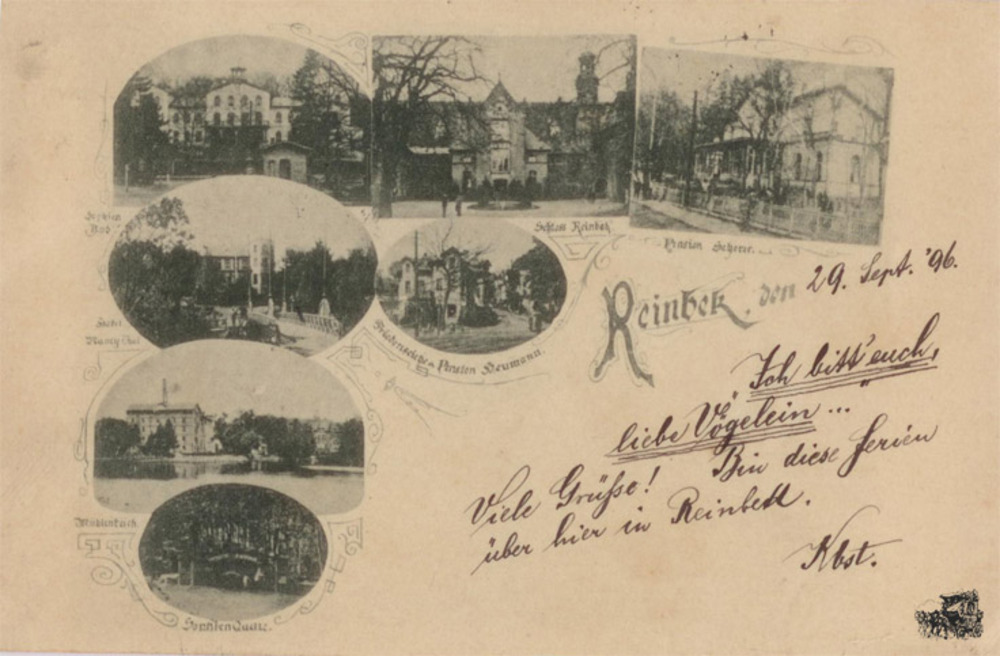 Sophien
Bad
Schloss Reinbek
Pension Scherer.
Hotel
Friedenseiche u. Pension Neumann.
Mühlenteich.
Sophien Quelle.
Reinbek, den 29. Sept. '96.
„Ich bitt' euch,
liebe Vögelein ...“
Viele Grüße! Bin diese Ferien
über hier in Reinbekk.
Kbst.